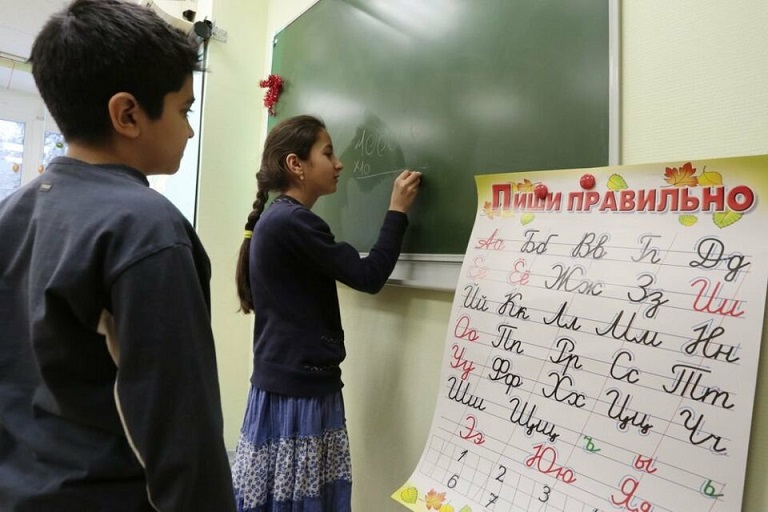 ПИШИ ПРАВИЛЬНО
Аа Бб Вв Гг Дд
Ее Ёё Жж Зз Ии
Йй Кк Лл Мм Нн
Оо Пп Рр Сс Тт
Уу Фф Хх Цц Чч
Шш Щщ ъ ы ь
Ээ Юю Яя
1 2 3
6 7